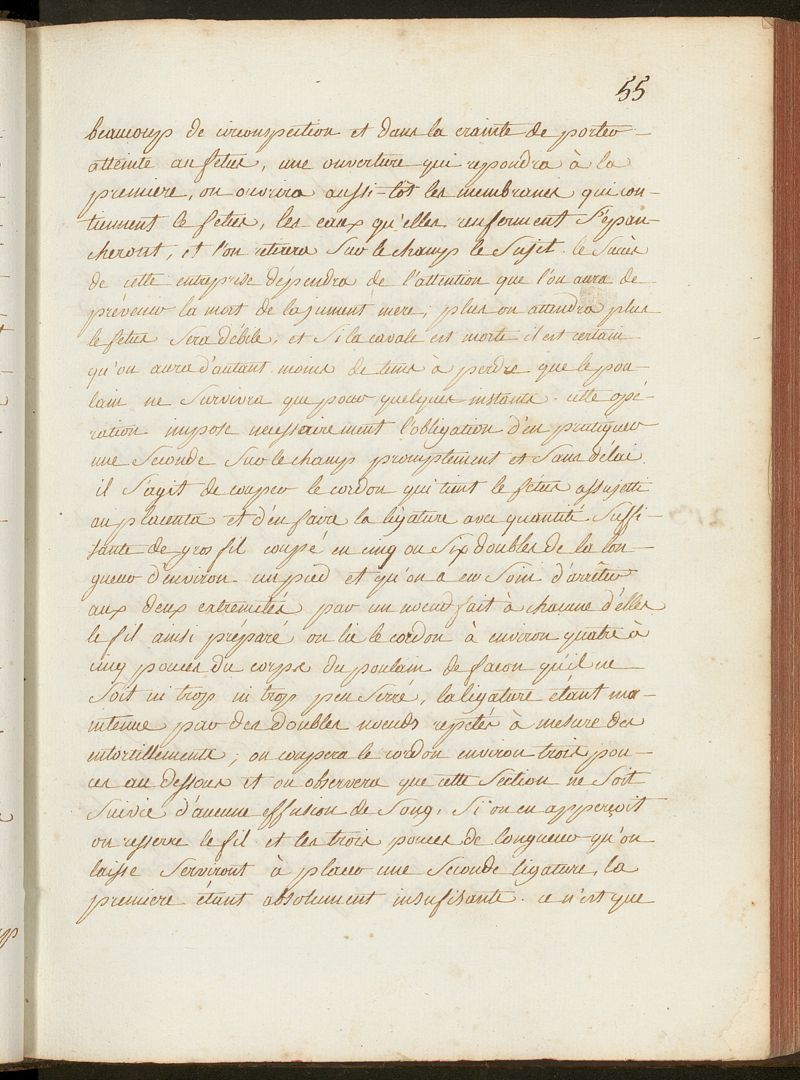 55
beaucoup de circonspection et dans la crainte de porter
atteinte au fetus, une ouverture qui repondra à la
premiere, on ouvrira aussi-tôt les membranes qui con-
tiennent le fetus, les eaux qu'elles renferment s'épan-
cheront, et l'on retirera sur le champ le sujet. le succès
de cette entreprise dépendra de l'attention que l'on aura de
prévenir la mort de la jument mere; plus on attendra plus
le fetus sera débile, et si la cavale est morte il est certain
qu'on aura d'autant moins de tems à perdre que le pou-
lain ne survivra que pour quelques instants. cette opé-
ration impose necessairement l'obligation d'en pratiquer
une seconde sur le champ promptement et sans délai.
il s'agit de couper le cordon qui tient le fetus assujetti
au placenta et d'en faire la ligature avec quantité suffi-
sante de gros fil coupé en cinq ou six doubles de la lon-
gueur d'environ un pied et qu'on a eu soin d'arrêter
aux deux extremités par un noeud fait à chacune d'elles
le fil ainsi préparé on lie le cordon à environ quatre à
cinq pouces du corps du poulain de facon qu'il ne
soit ni trop ni trop peu serré, la ligature étant ma-
intenue par des doubles noeuds repetés à mesure des
entortillements; on coupera le cordon environ trois pou-
ces au dessous et on observera que cette section ne soit
suivie d'aucune effusion de sang, si on en apperçoit
on resserre le fil et les trois pouces de longueur qu'on
laisse serviront à placer une seconde ligature, la
premiere étant absolument insufisante. ce n'est que